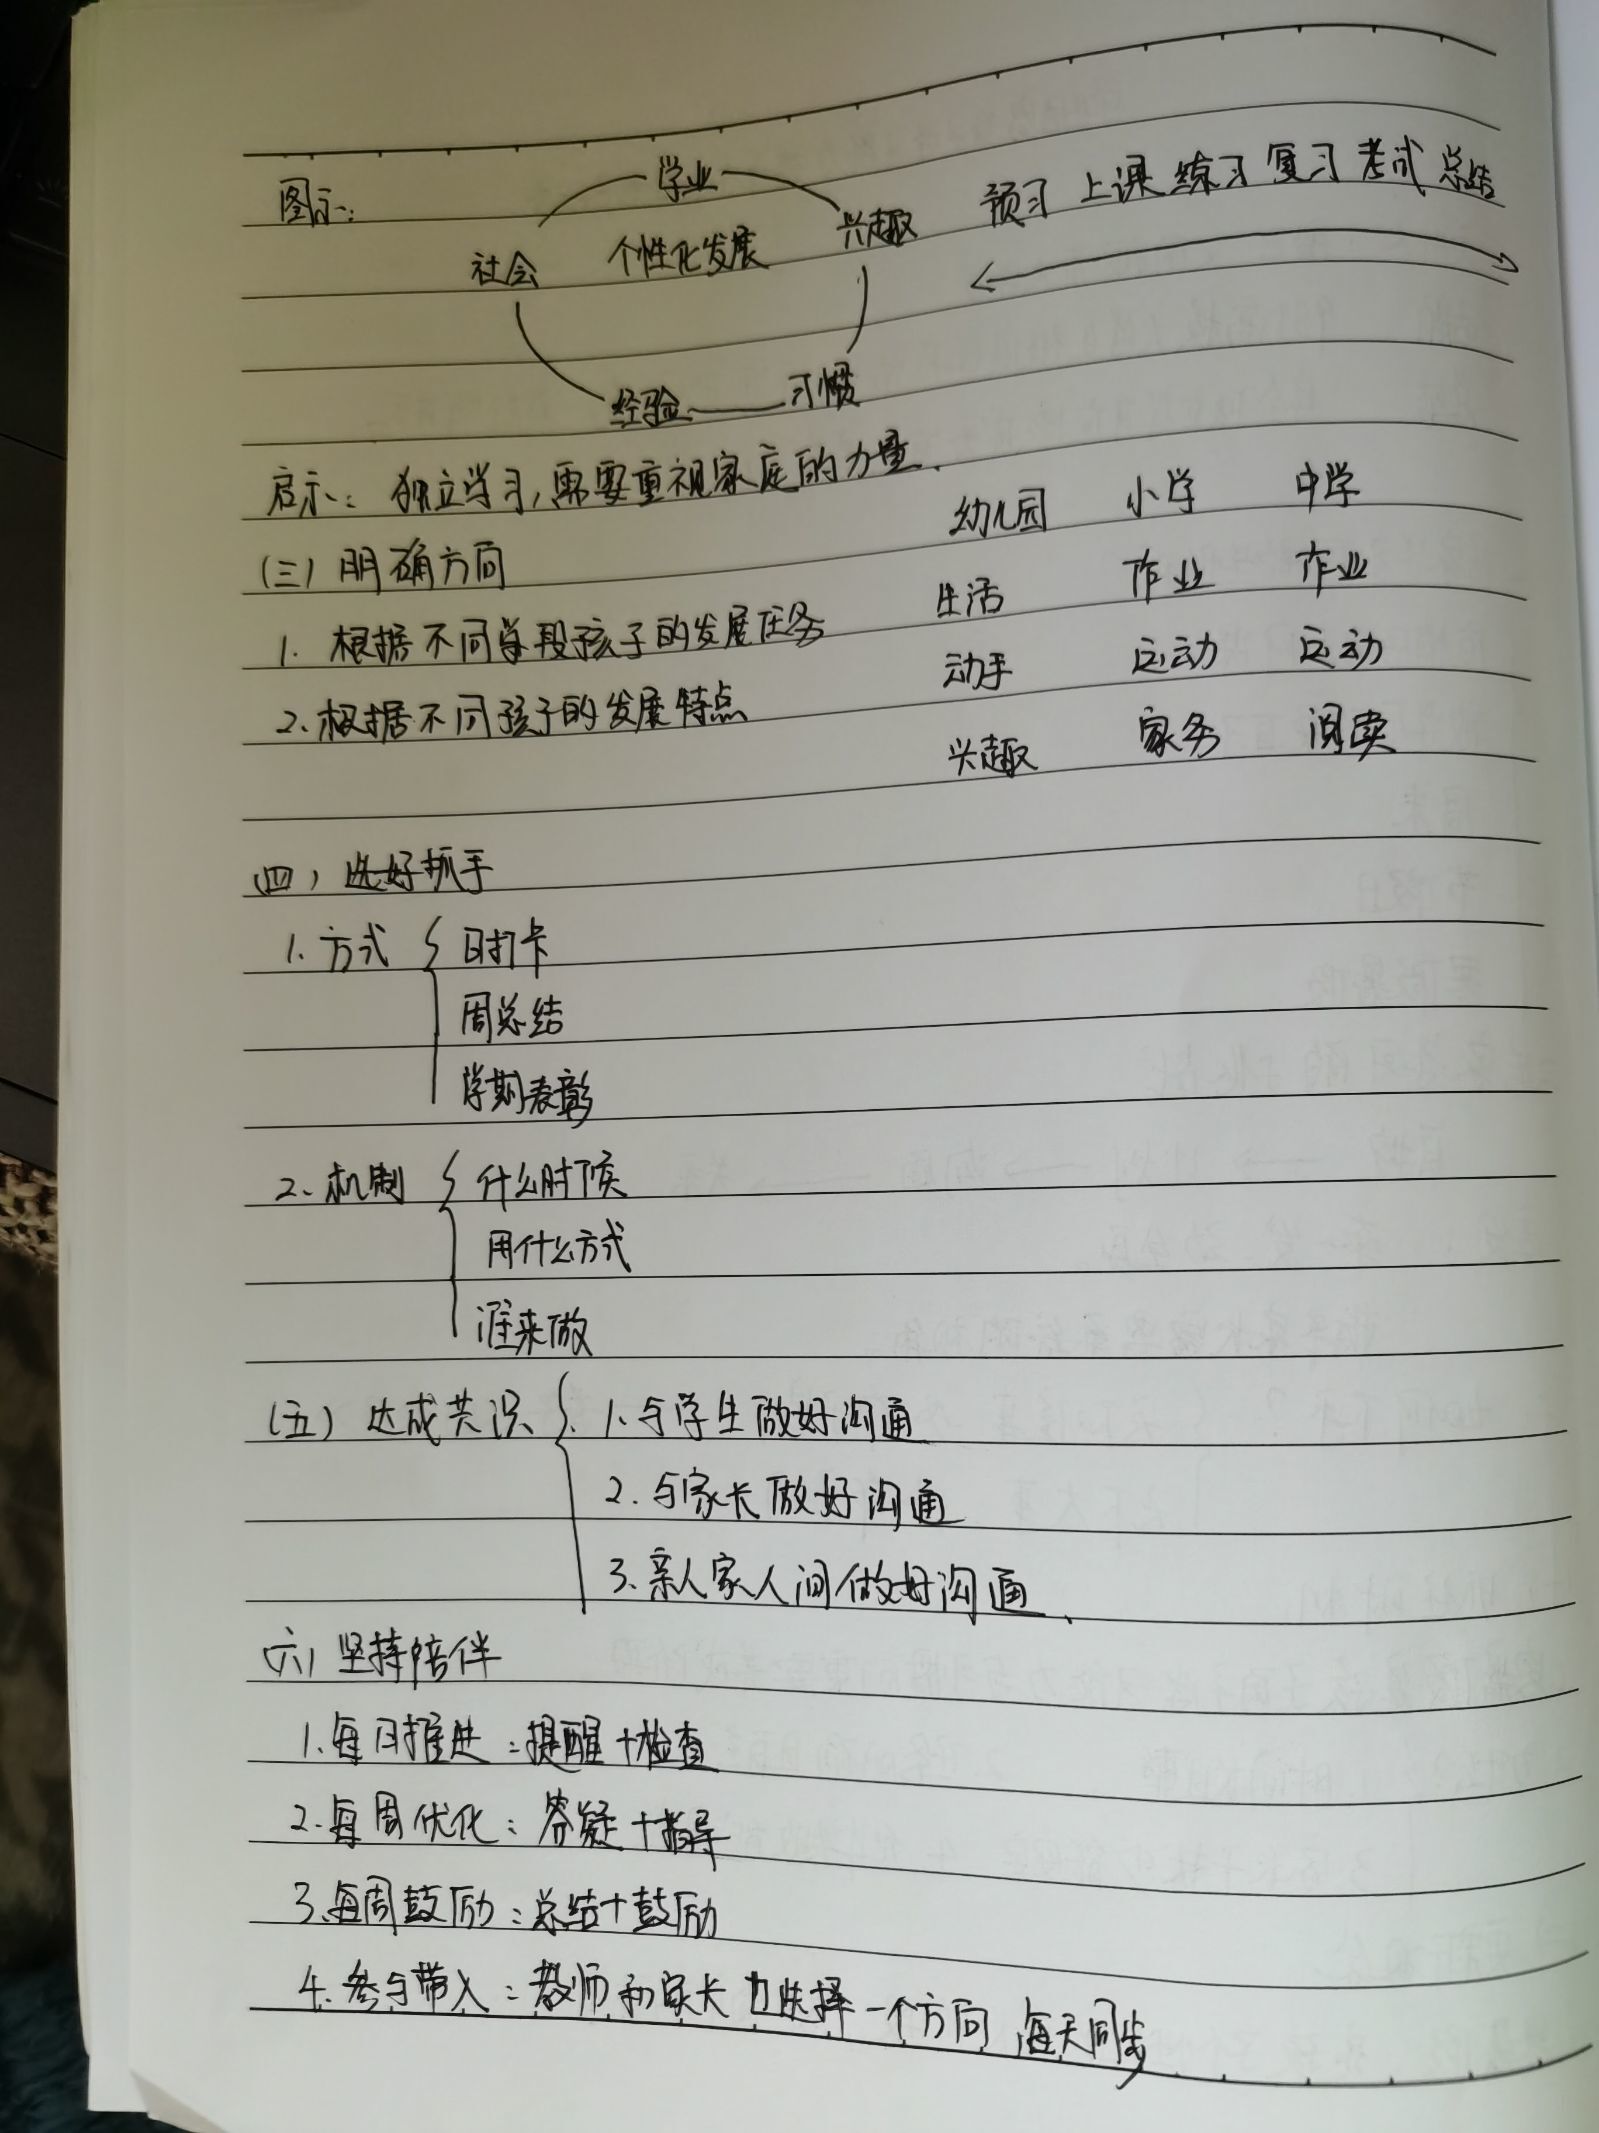 图示:
学业
社会 个性化发展 兴趣
经验 习惯
预习 上课 练习 复习 考试 总结
启示: 独立学习,需要重视家庭的力量.
(三) 明确方向
1. 根据不同学段孩子的发展任务
2. 根据不同孩子的发展特点
幼儿园 小学 中学
生活 作业 作业
动手 运动 运动
兴趣 家务 阅读
(四) 选好抓手
1. 方式 { 日打卡
周总结
学期表彰
2. 机制 { 什么时候
用什么方式
谁来做
(五) 达成共识 { 1. 与学生做好沟通
2. 与家长做好沟通
3. 亲人家人间做好沟通、
(六) 坚持陪伴
1. 每日推进: 提醒+检查
2. 每周优化: 答疑+指导
3. 每周鼓励: 总结+鼓励
4. 参与带入: 教师和家长 选择一个方向 每天同步